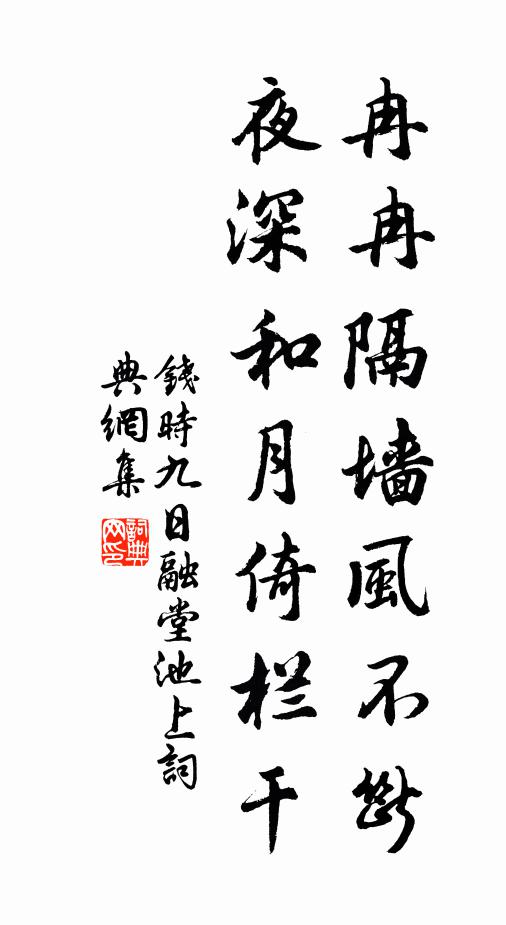 冉冉隔墙風不斷
夜深和月倚栏干
錢時九日融堂池上詞
典網集
詞典网印